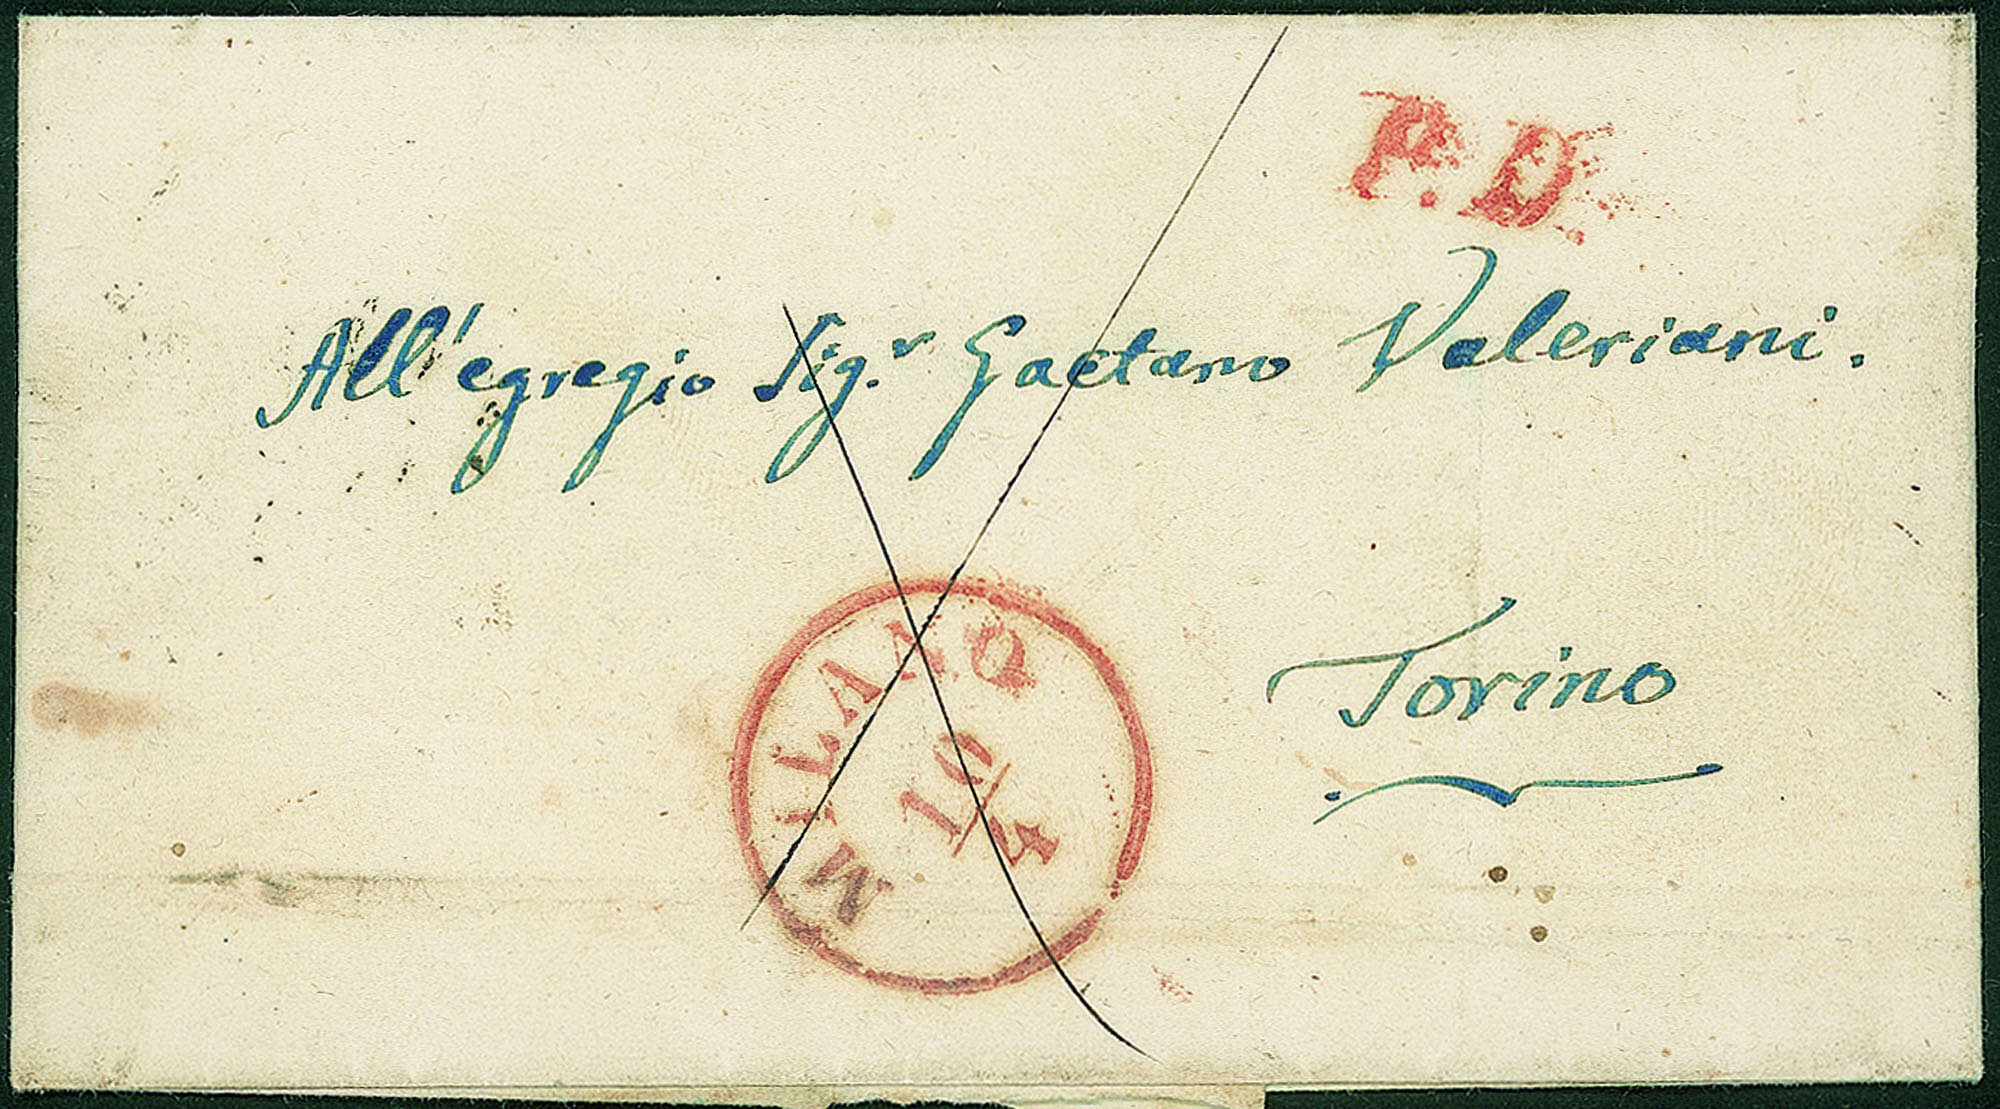 P.D.
All'egregio Sig.r Gaetano Valeriani.
MILANO
10/4
Torino